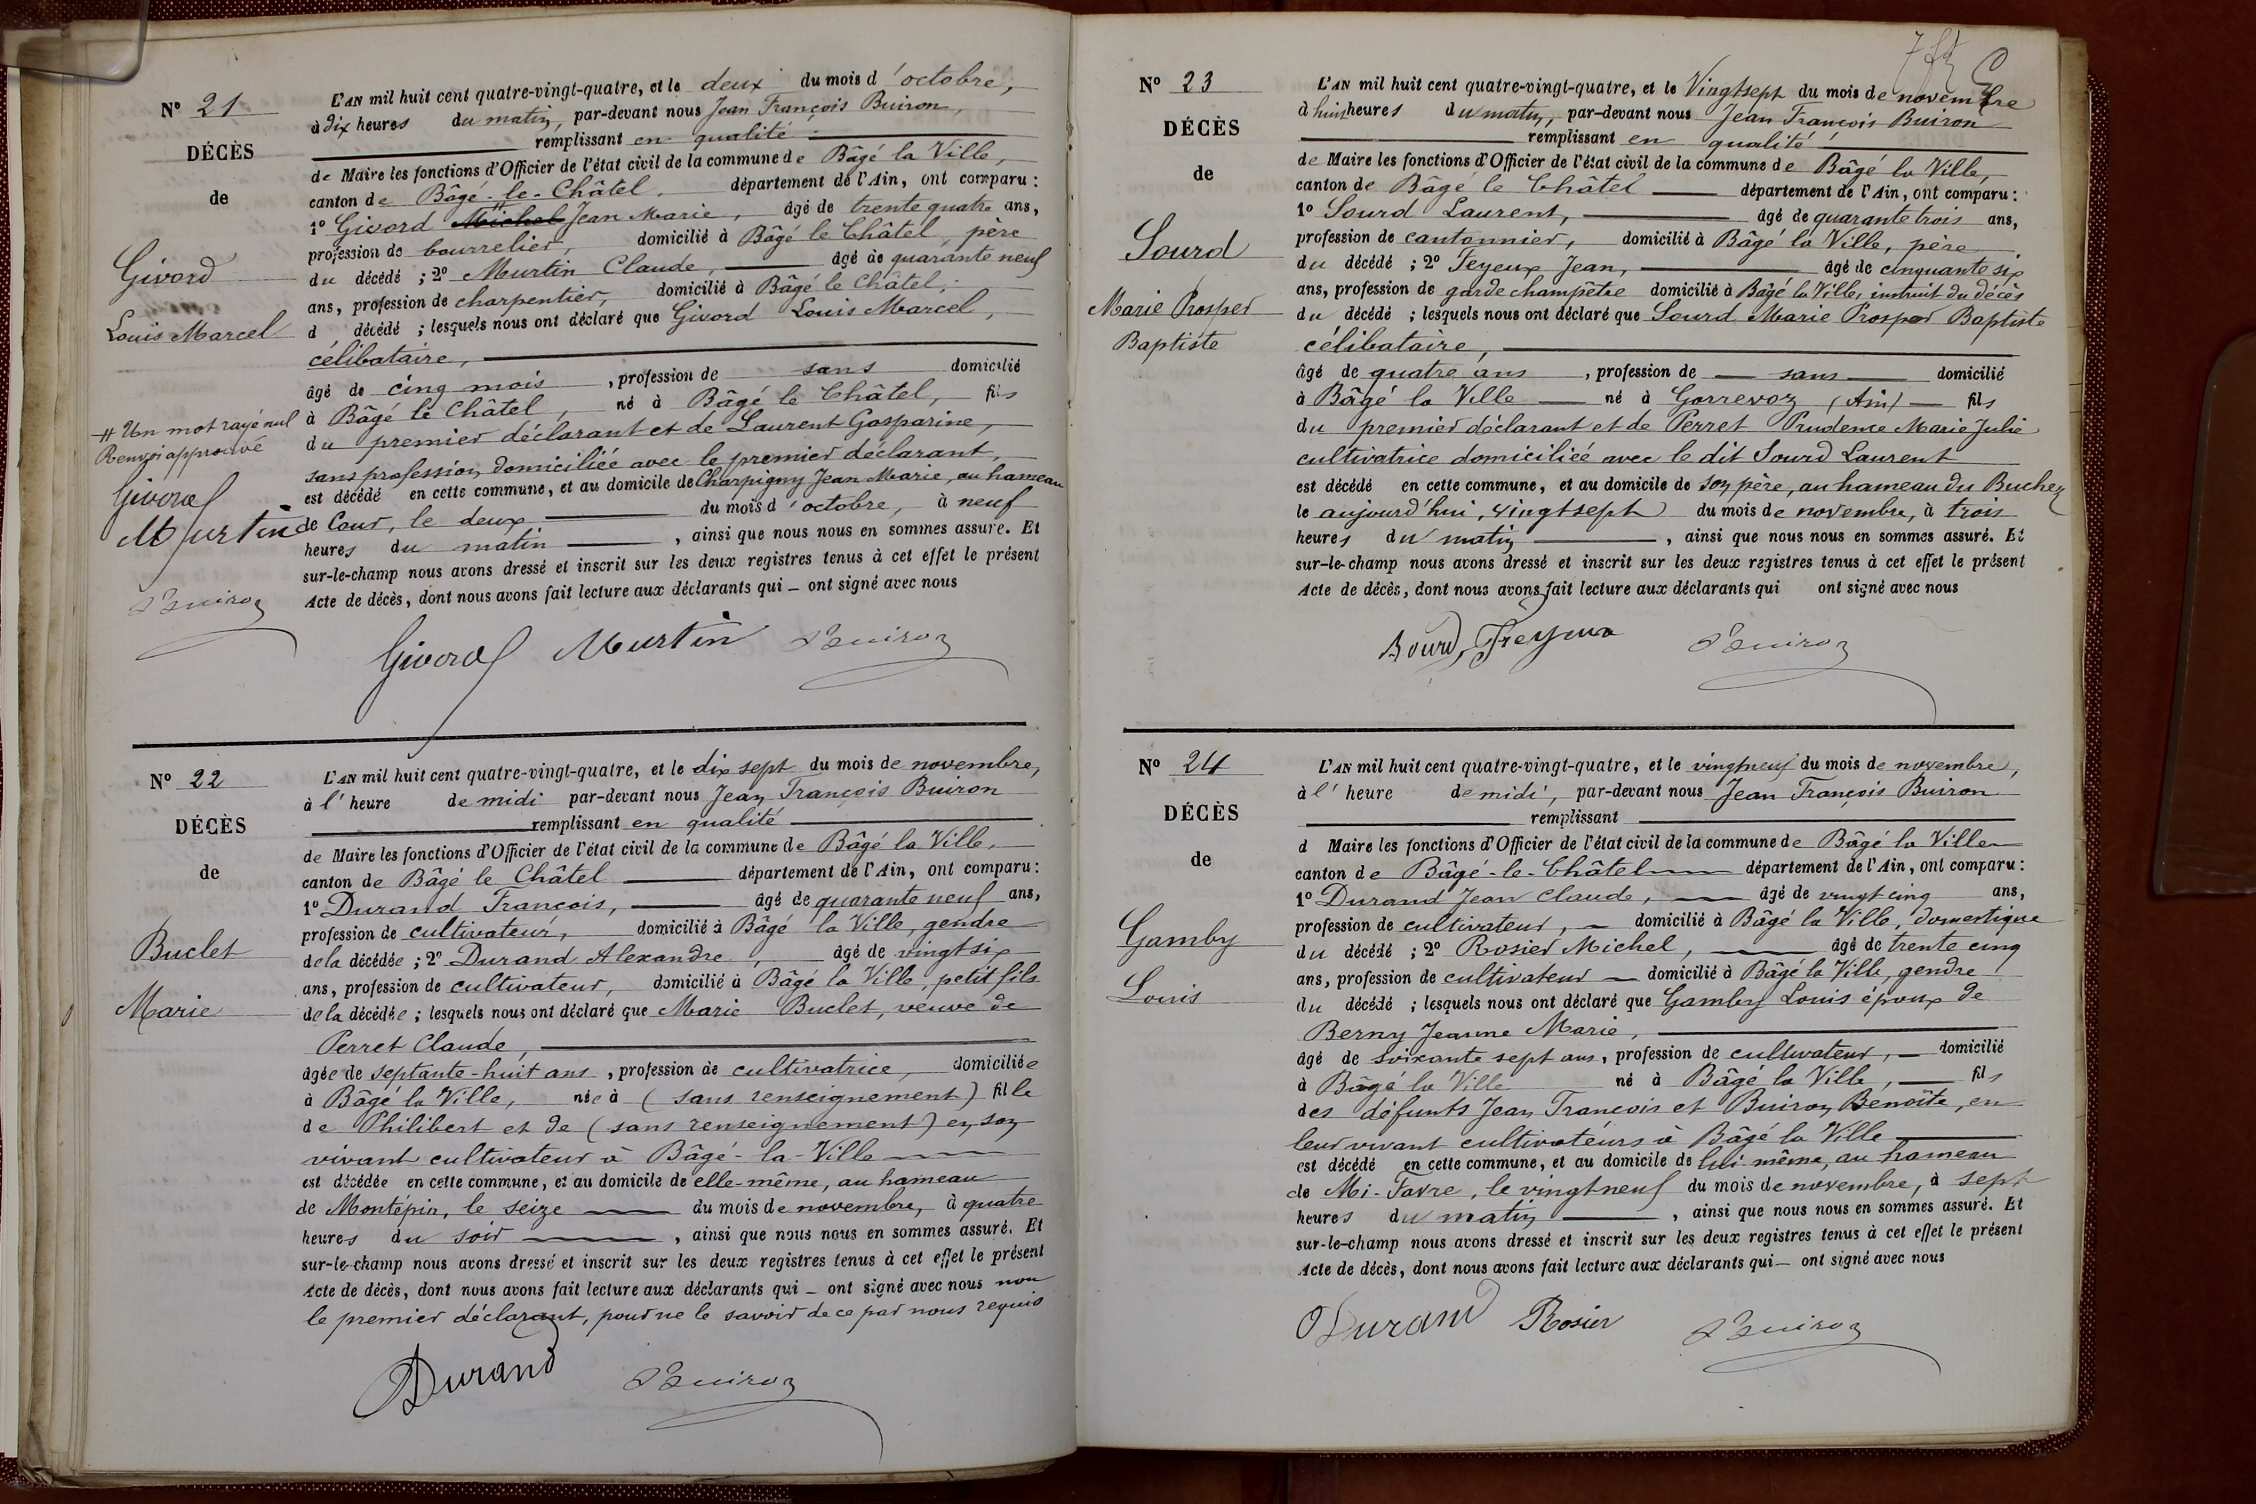 N° 21
DÉCÈS
de
Givord
Louis Marcel
# Un mot rayé nul
Renvoi approuvé
Givord
Murtin
Buiron
L'AN mil huit cent quatre-vingt-quatre, et le deux du mois d'octobre,
à dix heures du matin, par-devant nous Jean François Buiron,
remplissant en qualité
de Maire les fonctions d'Officier de l'état civil de la commune de Bâgé la Ville,
canton de Bâgé-le-Châtel, département de l'Ain, ont comparu :
1° Givord Michel # Jean Marie, âgé de trente quatre ans,
profession de bourrelier, domicilié à Bâgé le Châtel, père
du décédé ; 2° Murtin Claude, âgé de quarante neuf
ans, profession de charpentier, domicilié à Bâgé le Châtel,
d décédé ; lesquels nous ont déclaré que Givord Louis Marcel,
célibataire,
âgé de cinq mois, profession de sans domicilié
à Bâgé le Châtel, né à Bâgé le Châtel, fils
du premier déclarant et de Laurent Gasparine,
sans profession, domiciliée avec le premier déclarant,
est décédé en cette commune, et au domicile de Charpigny Jean Marie, au hameau
de Cour, le deux du mois d'octobre, à neuf
heures du matin, ainsi que nous nous en sommes assuré. Et
sur-le-champ nous avons dressé et inscrit sur les deux registres tenus à cet effet le présent
Acte de décès, dont nous avons fait lecture aux déclarants qui – ont signé avec nous
Givord Murtin Buiron
N° 22
DÉCÈS
de
Buclet
Marie
L'AN mil huit cent quatre-vingt-quatre, et le dix sept du mois de novembre,
à l'heure de midi par-devant nous Jean François Buiron
remplissant en qualité
de Maire les fonctions d'Officier de l'état civil de la commune de Bâgé la Ville,
canton de Bâgé le Châtel département de l'Ain, ont comparu :
1° Durand François, âgé de quarante neuf ans,
profession de cultivateur, domicilié à Bâgé la Ville, gendre
de la décédée ; 2° Durand Alexandre, âgé de vingt six
ans, profession de cultivateur, domicilié à Bâgé la Ville, petit fils
de la décédée ; lesquels nous ont déclaré que Marie Buclet, veuve de
Perret Claude,
âgée de septante-huit ans, profession de cultivatrice, domiciliée
à Bâgé la Ville, née à (sans renseignement) fille
de Philibert et de (sans renseignement) en son
vivant cultivateur à Bâgé-la-Ville
est décédée en cette commune, et au domicile de elle-même, au hameau
de Montépin, le seize du mois de novembre, à quatre
heures du soir, ainsi que nous nous en sommes assuré. Et
sur-le-champ nous avons dressé et inscrit sur les deux registres tenus à cet effet le présent
Acte de décès, dont nous avons fait lecture aux déclarants qui – ont signé avec nous non
le premier déclarant, pour ne le savoir de ce par nous requis
Durand Buiron
N° 23
DÉCÈS
de
Sourd
Marie Prosper
Baptiste
L'AN mil huit cent quatre-vingt-quatre, et le Vingt sept du mois de novembre
à huit heures du matin, par-devant nous Jean François Buiron
remplissant en qualité
de Maire les fonctions d'Officier de l'état civil de la commune de Bâgé la Ville,
canton de Bâgé le Châtel département de l'Ain, ont comparu :
1° Sourd Laurent, âgé de quarante trois ans,
profession de cantonnier, domicilié à Bâgé la Ville, père
du décédé ; 2° Feyeux Jean, âgé de cinquante six
ans, profession de garde champêtre domicilié à Bâgé la Ville, instruit du décès
du décédé ; lesquels nous ont déclaré que Sourd Marie Prosper Baptiste
célibataire,
âgé de quatre ans, profession de sans domicilié
à Bâgé la Ville né à Gorrevoz (Ain) fils
du premier déclarant et de Perret Prudence Marie Julie
cultivatrice domiciliée avec le dit Sourd Laurent
est décédé en cette commune, et au domicile de son père, au hameau du Buchez
le aujourd'hui, vingt sept du mois de novembre, à trois
heures du matin, ainsi que nous nous en sommes assuré. Et
sur-le-champ nous avons dressé et inscrit sur les deux registres tenus à cet effet le présent
Acte de décès, dont nous avons fait lecture aux déclarants qui ont signé avec nous
Sourd, Feyeux Buiron
N° 24
DÉCÈS
de
Gamby
Louis
L'AN mil huit cent quatre-vingt-quatre, et le vingt neuf du mois de novembre,
à l'heure de midi, par-devant nous Jean François Buiron
remplissant
d Maire les fonctions d'Officier de l'état civil de la commune de Bâgé la Ville
canton de Bâgé-le-Châtel département de l'Ain, ont comparu :
1° Durand Jean Claude, âgé de vingt cinq ans,
profession de cultivateur, domicilié à Bâgé la Ville, domestique
du décédé ; 2° Rosier Michel, âgé de trente cinq
ans, profession de cultivateur domicilié à Bâgé la Ville, gendre
du décédé ; lesquels nous ont déclaré que Gamby Louis époux de
Berny Jeanne Marie,
âgé de soixante sept ans, profession de cultivateur, domicilié
à Bâgé la Ville né à Bâgé la Ville, fils
des défunts Jean François et Buiron Benoîte, en
leur vivant cultivateurs à Bâgé la Ville
est décédé en cette commune, et au domicile de lui même, au hameau
de Mi-Favre, le vingt neuf du mois de novembre, à sept
heures du matin, ainsi que nous nous en sommes assuré. Et
sur-le-champ nous avons dressé et inscrit sur les deux registres tenus à cet effet le présent
Acte de décès, dont nous avons fait lecture aux déclarants qui – ont signé avec nous
Durand Rosier Buiron